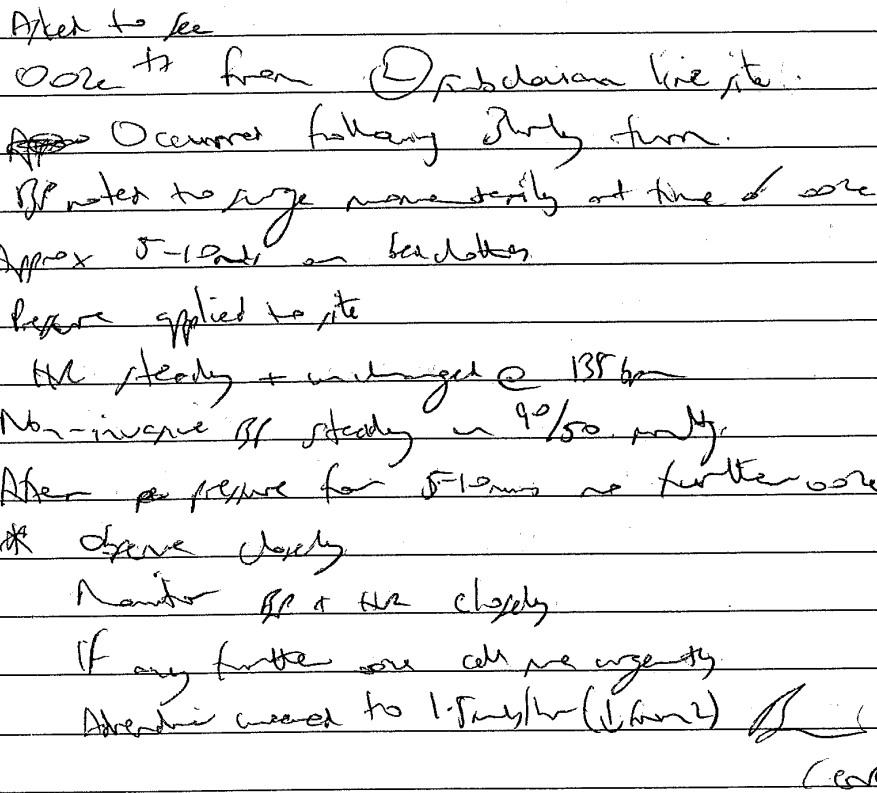 Asked to see
Ooze ++ from (L) subclavian line site.
Occurred following 3hrly turn.
BP noted to surge momentarily at time of ooze
Approx 5-10mls on bedclothes
Pressure applied to site
HR steady + unchanged @ 135 bpm
Non-invasive BP steady @ 90/50 mmHg.
After pressure for 5-10mins no further ooze
* observe closely
Monitor BP + HR closely
If any further ooze call me urgently
Adrenaline weaned to 1.5mls/hr (↓ from 2)